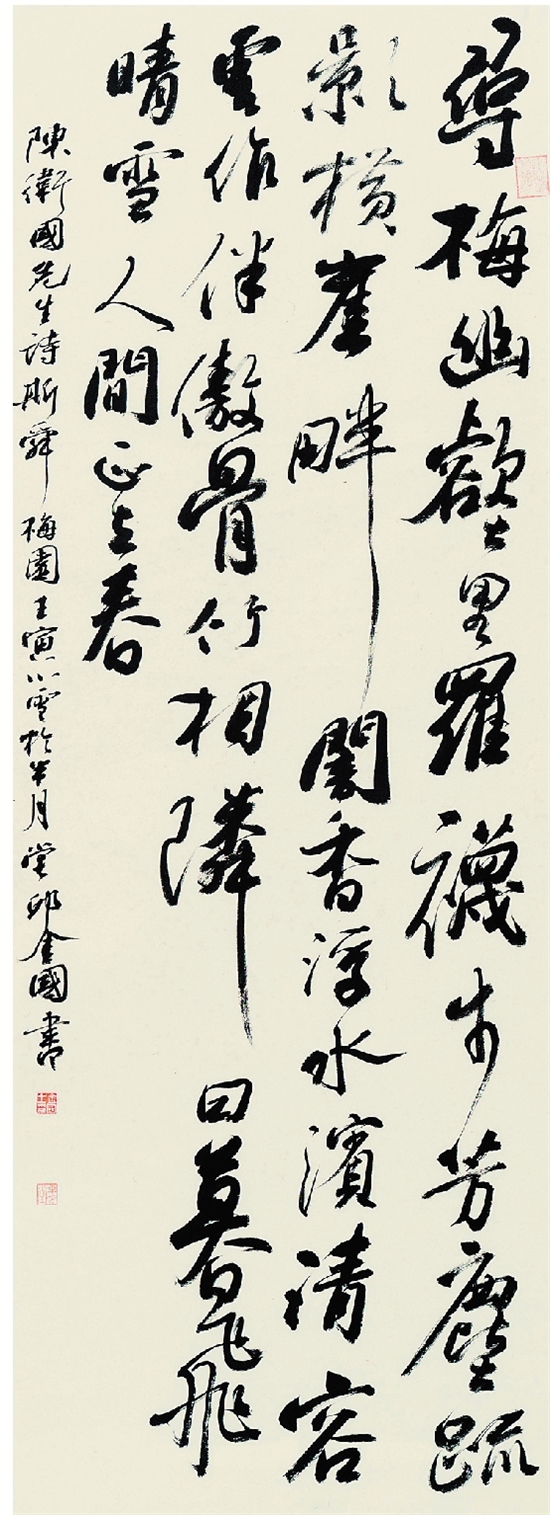 尋梅幽壑里羅襪步芳塵疏
影橫崖畔闇香浮水濱清容
雲作伴傲骨竹相隣日暮飛
晴雪人間正立春
陳衛國先生詩 梅園 壬寅小雪於半月堂邱金國書